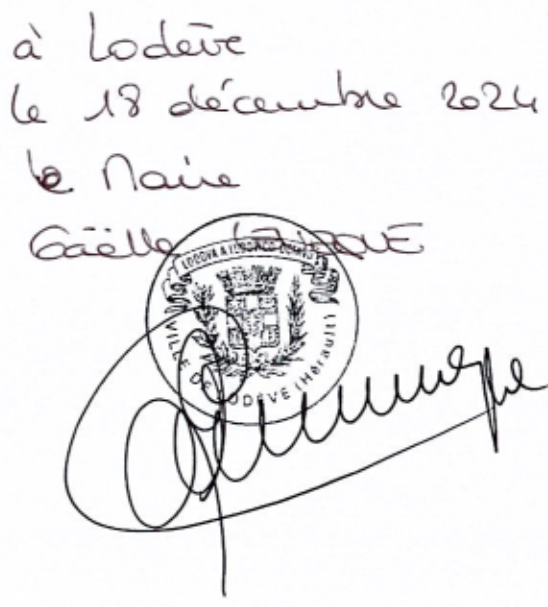 à Lodève
le 18 décembre 2024
le Maire
Gaëlle LÉVÊQUE
VILLE DE LODÈVE (Hérault)